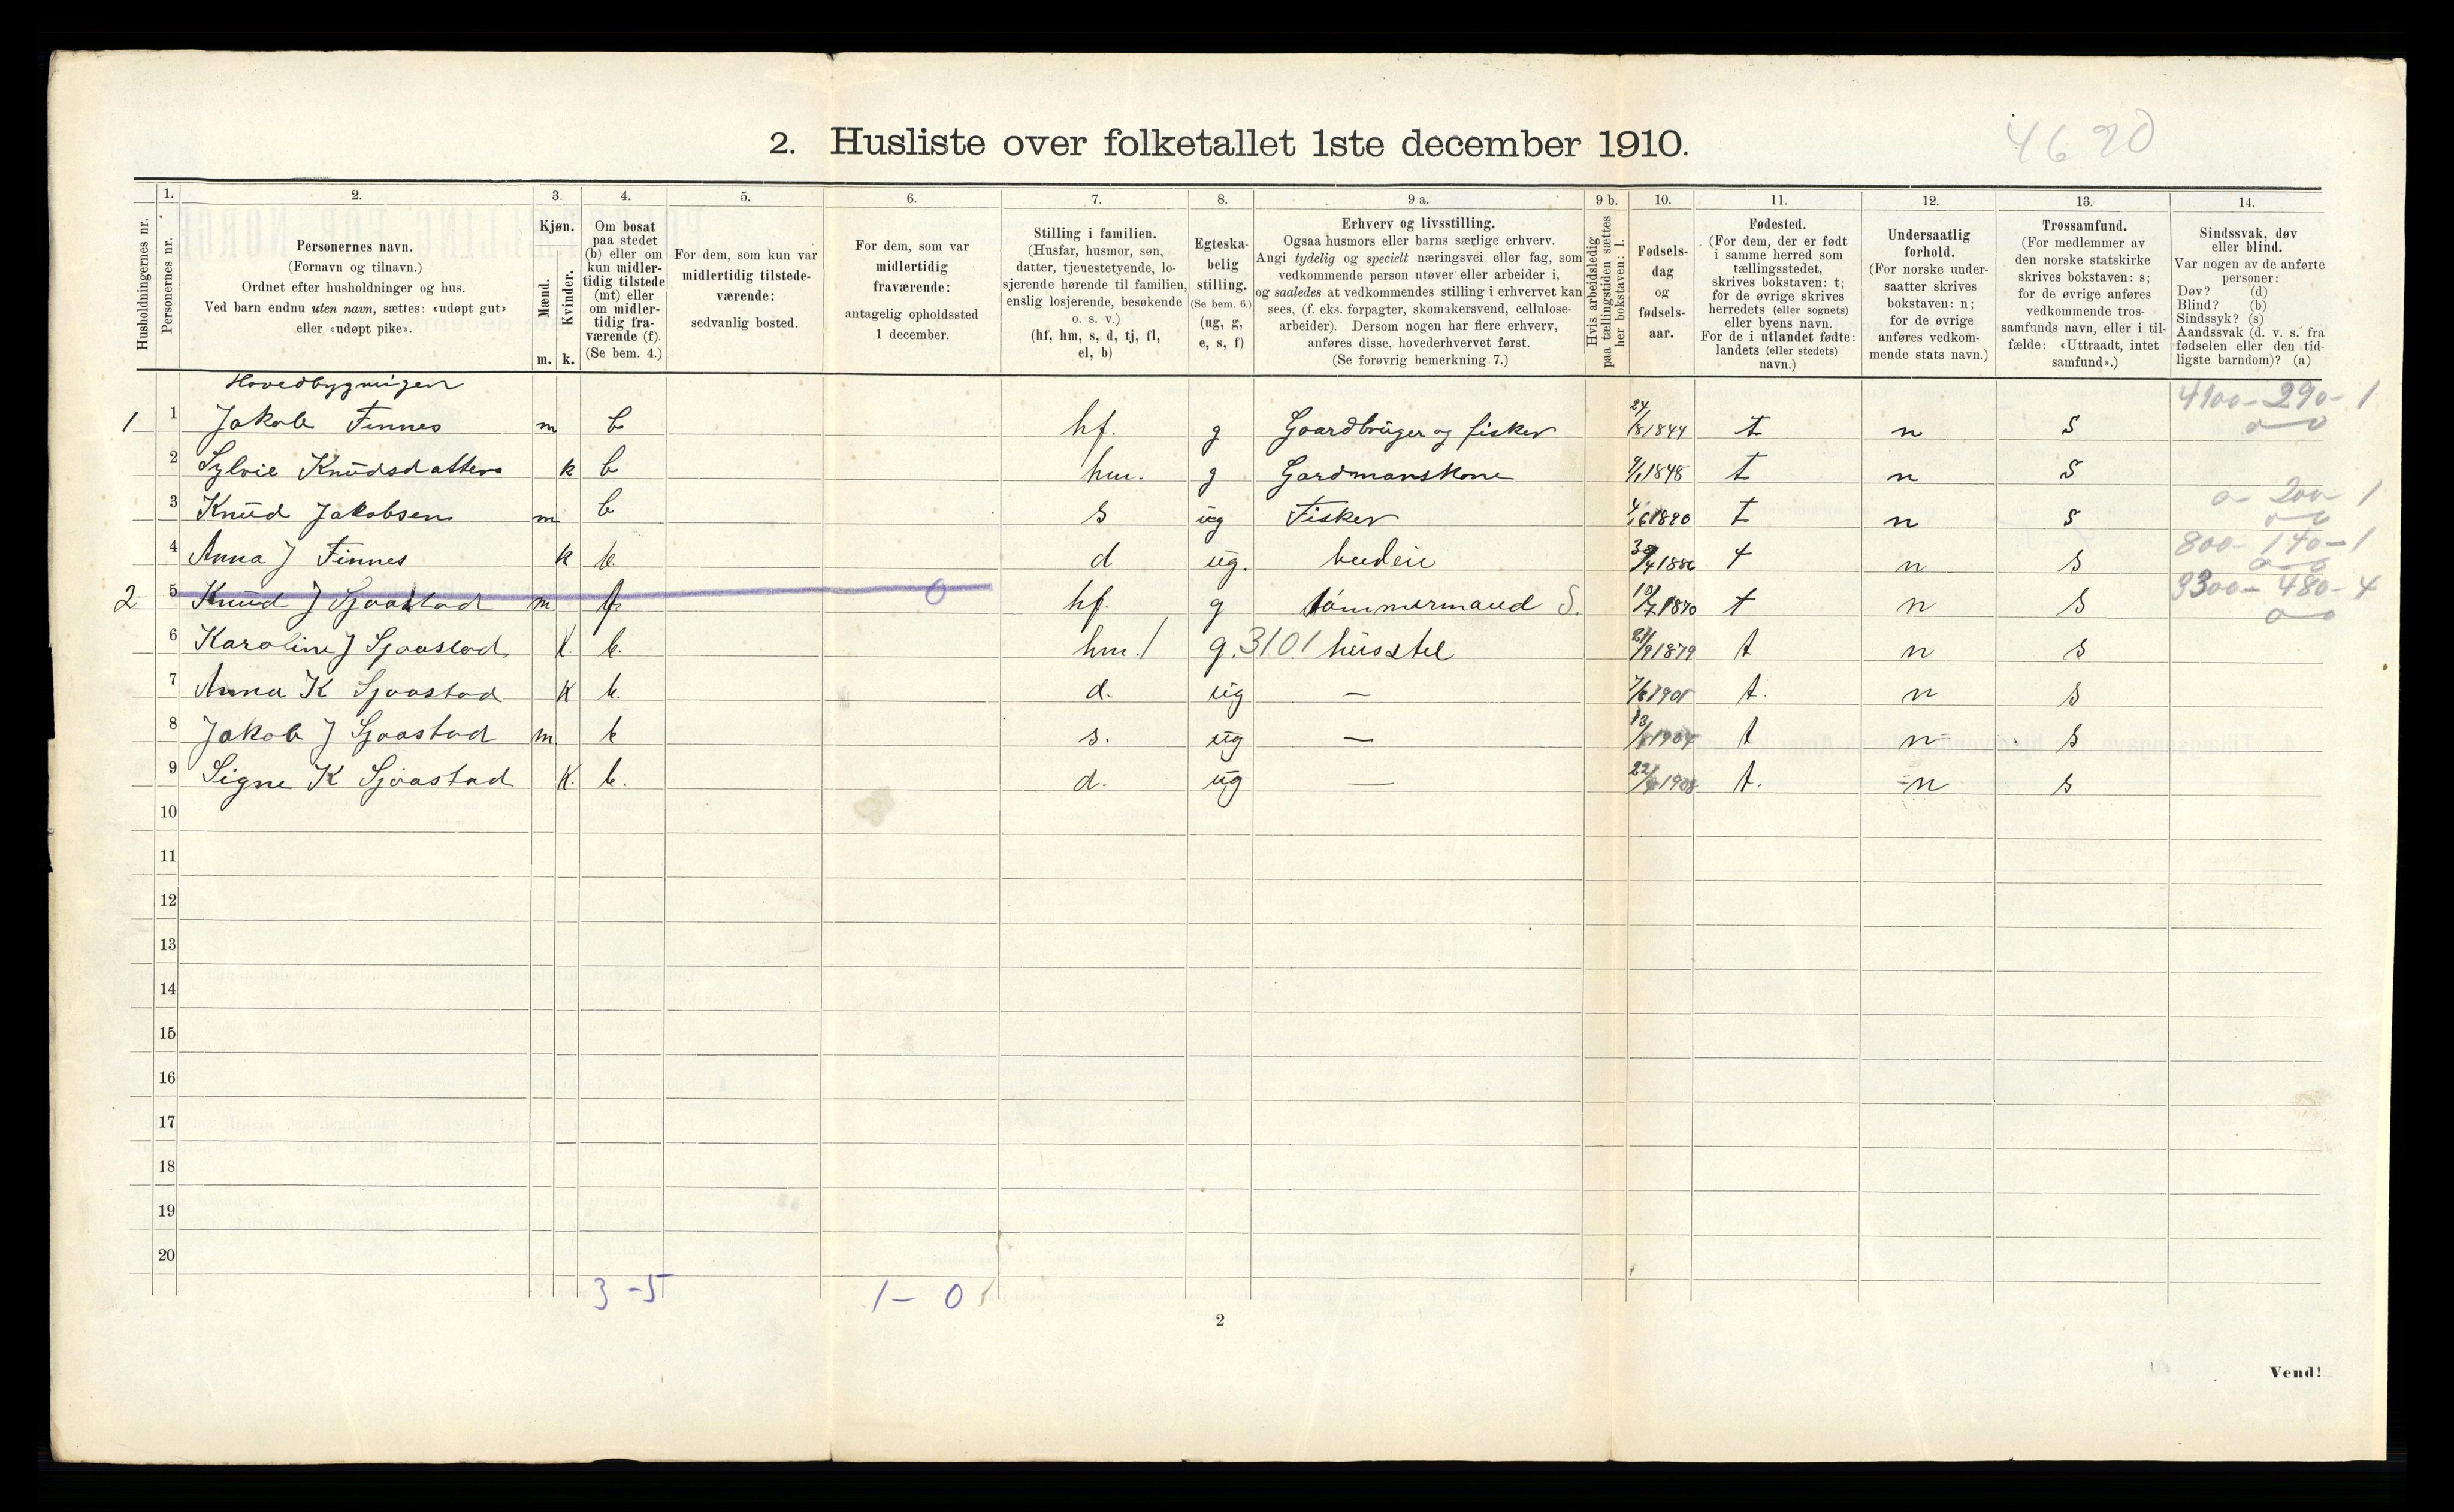 2. Husliste over folketallet 1ste december 1910.
4620
Husholdningernes nr.
1.
Personernes nr.
2.
Personernes navn.
(Fornavn og tilnavn.)
Ordnet efter husholdninger og hus.
Ved barn endnu uten navn, sættes: «udøpt gut»
eller «udøpt pike».
3.
Kjøn.
Mænd.
Kvinder.
m. k.
4.
Om bosat
paa stedet
(b) eller om
kun midler-
tidig tilstede
(mt) eller
om midler-
tidig fra-
værende (f).
(Se bem. 4.)
5.
For dem, som kun var
midlertidig tilstede-
værende:
sedvanlig bosted.
6.
For dem, som var
midlertidig
fraværende:
antagelig opholdssted
1 december.
7.
Stilling i familien.
(Husfar, husmor, søn,
datter, tjenestetyende, lo-
sjerende hørende til familien,
enslig losjerende, besøkende
o. s. v.)
(hf, hm, s, d, tj, fl,
el, b)
8.
Egteska-
belig
stilling.
(Se bem. 6.)
(ug, g,
e, s, f)
9 a.
Erhverv og livsstilling.
Ogsaa husmors eller barns særlige erhverv.
Angi tydelig og specielt næringsvei eller fag, som
vedkommende person utøver eller arbeider i,
og saaledes at vedkommendes stilling i erhvervet kan
sees, (f. eks. forpagter, skomakersvend, cellulose-
arbeider). Dersom nogen har flere erhverv,
anføres disse, hovederhvervet først.
(Se forøvrig bemerkning 7.)
9 b.
Hvis arbeidsledig
paa tællingstiden sættes
her bokstaven: l.
10.
Fødsels-
dag
og
fødsels-
aar.
11.
Fødested.
(For dem, der er født
i samme herred som
tællingsstedet,
skrives bokstaven: t;
for de øvrige skrives
herredets (eller sognets)
eller byens navn.
For de i utlandet fødte:
landets (eller stedets)
navn.)
12.
Undersaatlig
forhold.
(For norske under-
saatter skrives
bokstaven: n;
for de øvrige
anføres vedkom-
mende stats navn.)
13.
Trossamfund.
(For medlemmer av
den norske statskirke
skrives bokstaven: s;
for de øvrige anføres
vedkommende tros-
samfunds navn, eller i til-
fælde: «Uttraadt, intet
samfund».)
14.
Sindssvak, døv
eller blind.
Var nogen av de anførte
personer:
Døv? (d)
Blind? (b)
Sindssyk? (s)
Aandssvak (d. v. s. fra
fødselen eller den tid-
ligste barndom)? (a)
Hovedbygningen
4100-290-1
1 1 Jakob Finnes m b hf. g Gaardbruger og fisker 24/8 1844 t n s 0-0
2 Sylvie Knudsdatter k b hm. g Gardmanskone 9/1 1848 t n s
0-200-1
3 Knud Jakobsen m b s ug Fisker 4/6 1890 t n s 0-0
800-170-1
4 Anna J Finnes k b. d ug. budeie 30/4 1886 t n s 0-0
3300-480-4
2 5 Knud J Sjaastad m. f. 0 hf. g tømmermand S. 10/7 1870 t n s 0-0
6 Karoline J Sjaastad k. b. hm. / g. 3101 husstel 21/9 1879 t n s
7 Anna K Sjaastad k b. d. ug — 7/6 1901 t. n s
8 Jakob J Sjaastad m b s. ug — 13/1 1904 t n s
9 Signe K Sjaastad k. b. d. ug — 22/4 1908 t. n s
10
11
12
13
14
15
16
17
18
19
20
3-5 1-0
2
Vend!